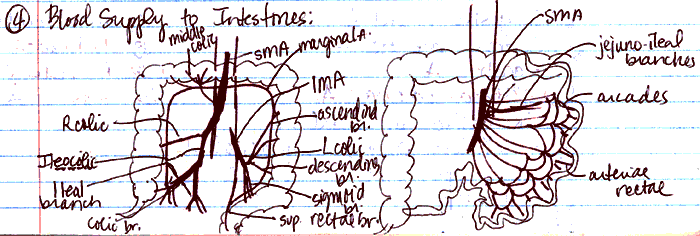 ④ Blood Supply to Intestines:
middle
colic
SMA
marginal A.
IMA
R colic
Ileocolic
Ileal
branch
colic br.
ascending
br.
L colic
descending
br.
sigmoid
br.
sup. rectal br.
SMA
jejuno-ileal
branches
arcades
arteriae
rectae